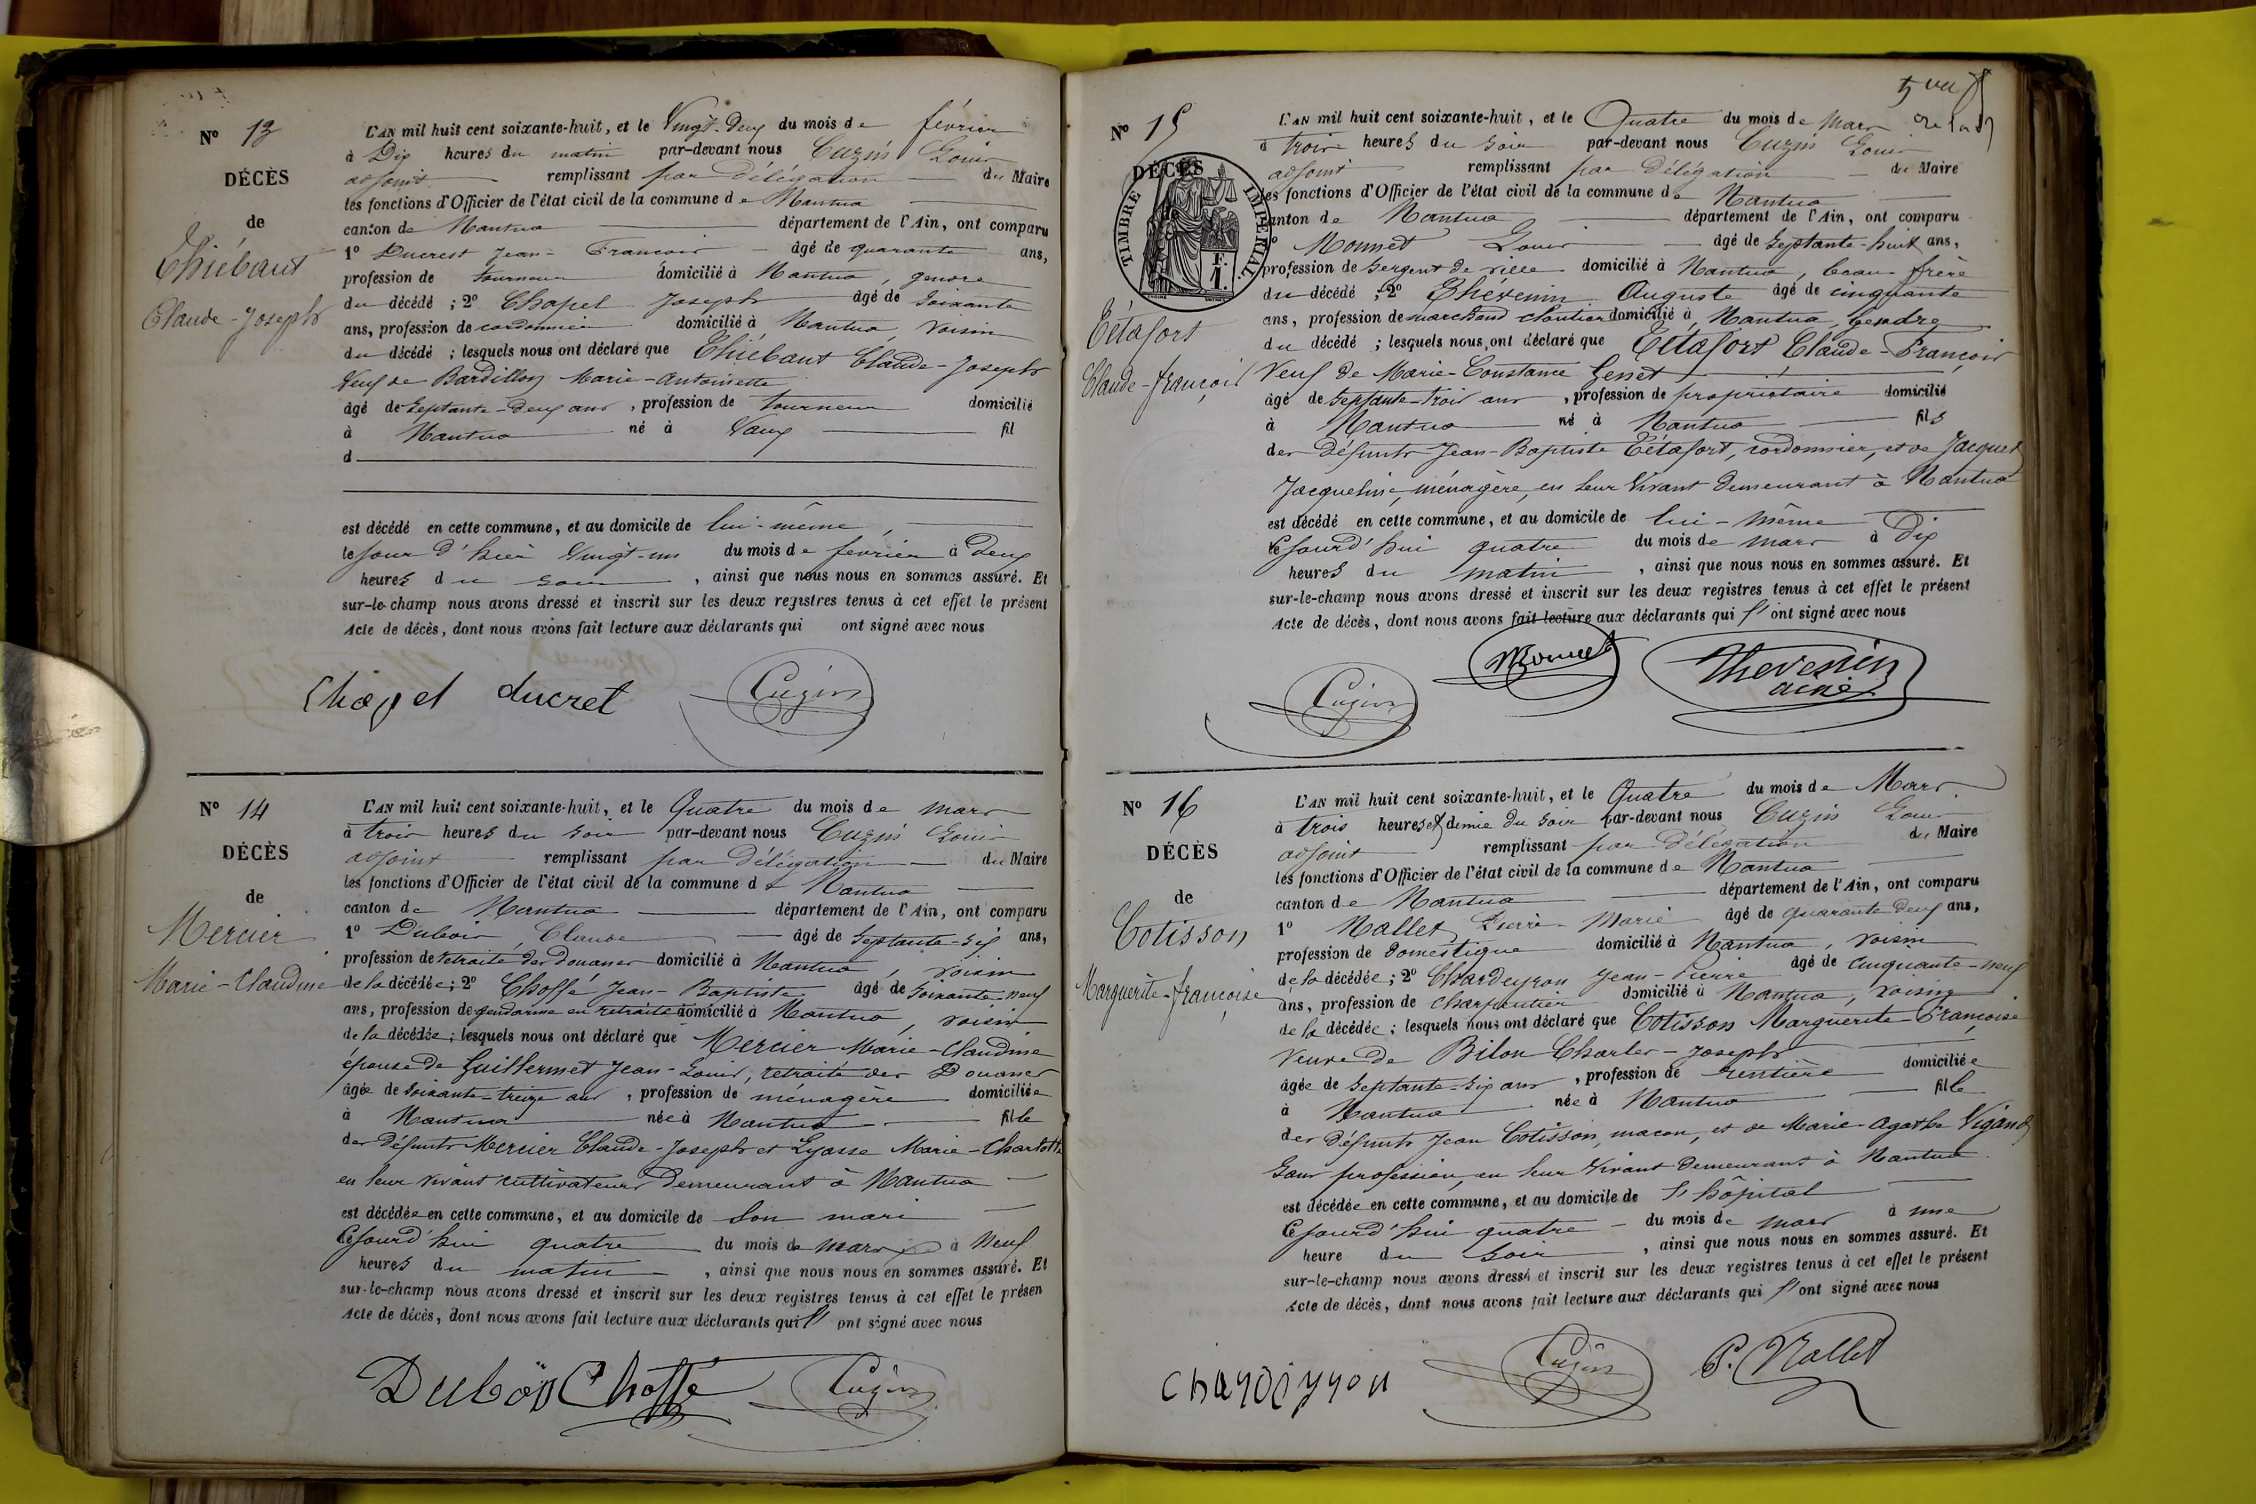 N° 13
DÉCÈS
de
Thiébaut
Claude-Joseph
L'AN mil huit cent soixante-huit, et le Vingt-Deux du mois de février
à Dix heures du matin par-devant nous Cuzin Louis
adjoint remplissant par délégation du Maire
les fonctions d'Officier de l'état civil de la commune de Nantua
canton de Nantua département de l'Ain, ont comparu
1° Ducrest Jean-François âgé de quarante ans,
profession de tourneur domicilié à Nantua, gendre
du décédé ; 2° Chapel Joseph âgé de soixante
ans, profession de cordonnier domicilié à Nantua, voisin
du décédé ; lesquels nous ont déclaré que Thiébaut Claude-Joseph
Veuf de Bardillon Marie-Antoinette
âgé de septante-deux ans, profession de tourneur domicilié
à Nantua né à Vaux fil
d
est décédé en cette commune, et au domicile de lui-même,
le jour d'hier vingt-un du mois de février à Deux
heures du soir, ainsi que nous nous en sommes assuré. Et
sur-le-champ nous avons dressé et inscrit sur les deux registres tenus à cet effet le présent
Acte de décès, dont nous avons fait lecture aux déclarants qui ont signé avec nous
Chapel ducret Cuzin
N° 14
DÉCÈS
de
Mercier
Marie-Claudine
L'AN mil huit cent soixante-huit, et le Quatre du mois de mars
à trois heures du soir par-devant nous Cuzin Louis
adjoint remplissant par délégation du Maire
les fonctions d'Officier de l'état civil de la commune de Nantua
canton de Nantua département de l'Ain, ont comparu
1° Dubois Claude âgé de septante-six ans,
profession de retraité des douanes domicilié à Nantua, voisin
de la décédée ; 2° Choffé Jean-Baptiste âgé de soixante-neuf
ans, profession de gendarme en retraite domicilié à Nantua, voisin
de la décédée ; lesquels nous ont déclaré que Mercier Marie-Claudine
épouse de Guillermet Jean-Louis, retraité des Douanes
âgée de soixante-treize ans, profession de ménagère domiciliée
à Nantua née à Nantua fille
des défunts Mercier Claude-Joseph et Lyasse Marie-Charlotte
en leur vivant cultivateurs demeurant à Nantua
est décédée en cette commune, et au domicile de son mari
Cejourd'hui quatre du mois de mars à Neuf
heures du matin, ainsi que nous nous en sommes assuré. Et
sur-le-champ nous avons dressé et inscrit sur les deux registres tenus à cet effet le présen
Acte de décès, dont nous avons fait lecture aux déclarants qui l' ont signé avec nous
Dubois Choffé Cuzin
N° 15
DÉCÈS
TIMBRE IMPÉRIAL
1 F.
Tétafort
Claude-françois
L'AN mil huit cent soixante-huit, et le Quatre du mois de mars
à trois heures du soir par-devant nous Cuzin Louis
adjoint remplissant par délégation du Maire
les fonctions d'Officier de l'état civil de la commune de Nantua
canton de Nantua département de l'Ain, ont comparu
1° Monnet Louis âgé de septante-huit ans,
profession de sergent de ville domicilié à Nantua, beau-frère
du décédé ; 2° Thévenin Auguste âgé de cinquante
ans, profession de marchand cloutier domicilié à Nantua, Gendre
du décédé ; lesquels nous ont déclaré que Tétafort Claude-François
Veuf de Marie-Constance Genet
âgé de septante-trois ans, profession de propriétaire domicilié
à Nantua né à Nantua fils
des défunts Jean-Baptiste Tétafort, cordonnier, et de Jacquet
Jacqueline, ménagère, en leur vivant demeurant à Nantua
est décédé en cette commune, et au domicile de lui-même
Cejourd'hui quatre du mois de mars à Dix
heures du matin, ainsi que nous nous en sommes assuré. Et
sur-le-champ nous avons dressé et inscrit sur les deux registres tenus à cet effet le présent
Acte de décès, dont nous avons fait lecture aux déclarants qui l' ont signé avec nous
Cuzin Monnet Thevenin
ainé
N° 16
DÉCÈS
de
Cotisson
Marguerite-françoise
L'AN mil huit cent soixante-huit, et le Quatre du mois de Mars
à trois heures et demie du soir par-devant nous Cuzin Louis
adjoint remplissant par délégation du Maire
les fonctions d'Officier de l'état civil de la commune de Nantua
canton de Nantua département de l'Ain, ont comparu
1° Nallet Pierre-Marie âgé de quarante-deux ans,
profession de domestique domicilié à Nantua, voisin
de la décédée ; 2° Chardeyron Jean-Pierre âgé de cinquante-neuf
ans, profession de charpentier domicilié à Nantua, voisin
de la décédée ; lesquels nous ont déclaré que Cotisson Marguerite-Françoise
Veuve de Bilon Charles-Joseph
âgée de septante-six ans, profession de rentière domiciliée
à Nantua née à Nantua fille
des défunts Jean Cotisson, maçon, et de Marie-Agathe Vigand
sans profession, en leur vivant demeurant à Nantua
est décédée en cette commune, et au domicile de l'hôpital
Cejourd'hui quatre du mois de mars à une
heure du soir, ainsi que nous nous en sommes assuré. Et
sur-le-champ nous avons dressé et inscrit sur les deux registres tenus à cet effet le présent
Acte de décès, dont nous avons fait lecture aux déclarants qui l' ont signé avec nous
Cuzin P. Nallet